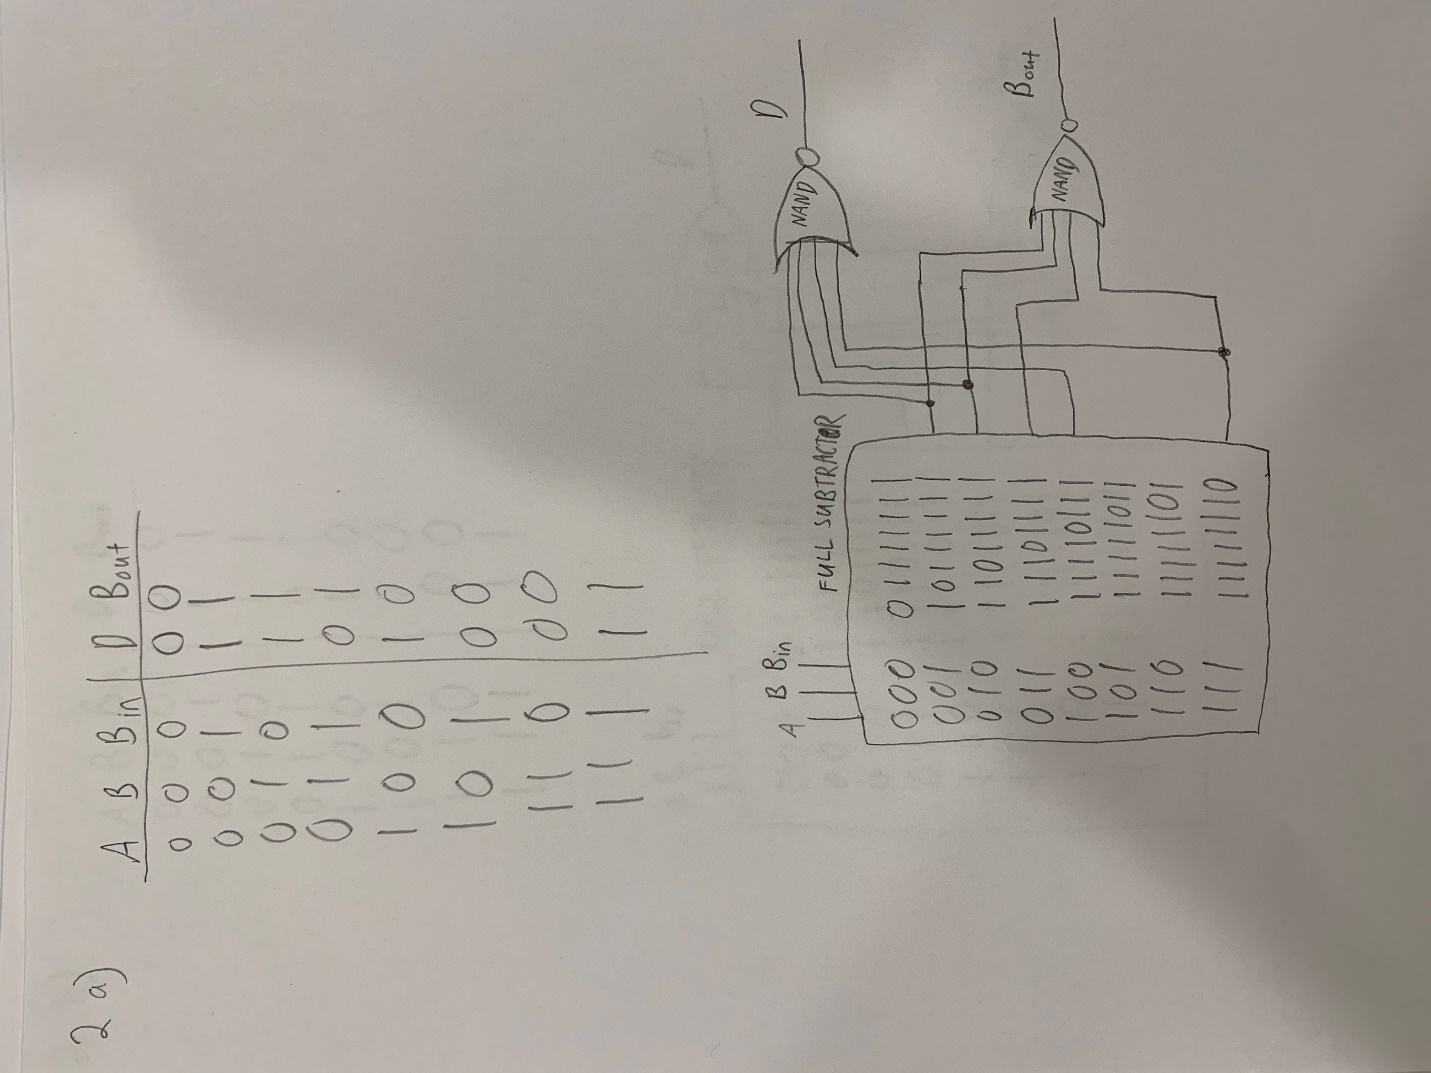 2 a)
A B Bin | D Bout
0 0 0 0 0
0 0 1 1 1
0 1 0 1 1
0 1 1 0 1
1 0 0 1 0
1 0 1 0 0
1 1 0 0 0
1 1 1 1 1
FULL SUBTRACTOR
A B Bin
000 01111111
001 10111111
010 11011111
011 11101111
100 11110111
101 11111011
110 11111101
111 11111110
NAND D
NAND Bout